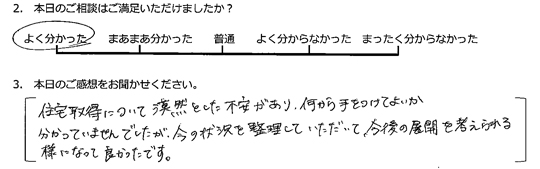 2. 本日のご相談はご満足いただけましたか？
よく分かった　まあまあ分かった　普通　よく分からなかった　まったく分からなかった
3. 本日のご感想をお聞かせください。
住宅取得について漠然とした不安があり、何から手をつけてよいか
分かっていませんでしたが、今の状況を整理していただいて、今後の展開を考えられる
様になって良かったです。